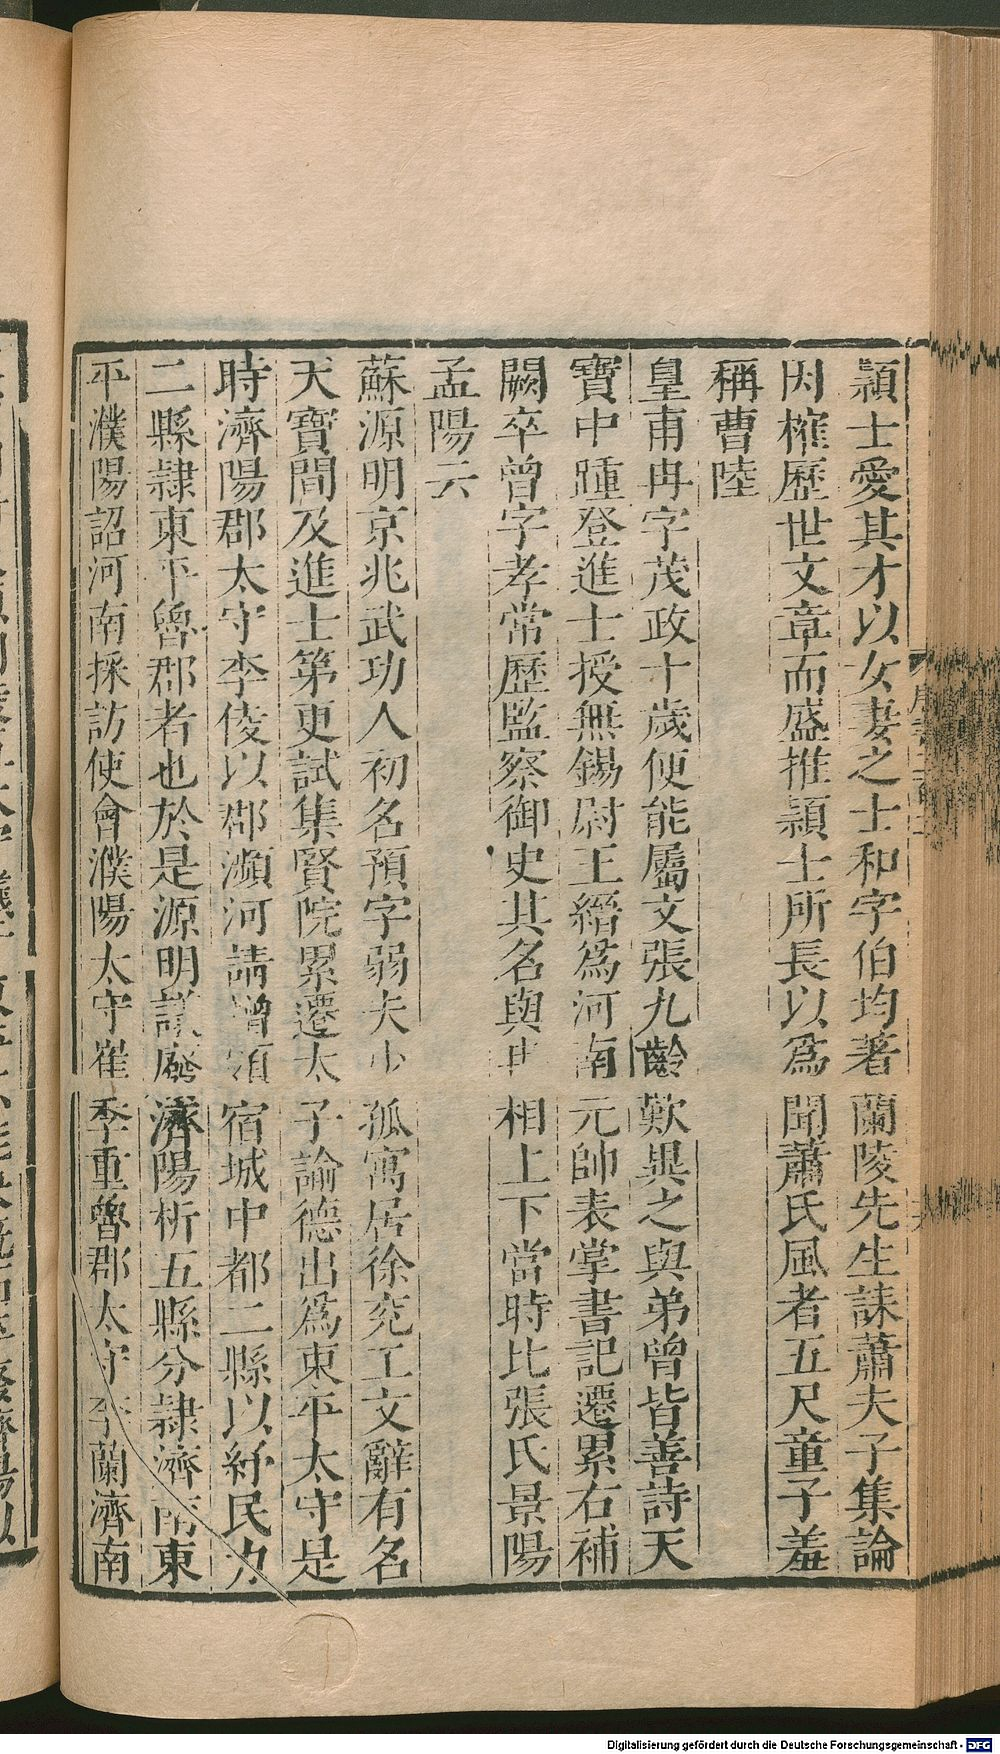 頴士愛其才以女妻之士和字伯均著蘭陵先生誄蕭夫子集論
因榷歷世文章而盛推頴士所長以爲聞蕭氏風者五尺童子羞
稱曹陸
皇甫冉字茂政十歲便能屬文張九齡歎異之與弟曾皆善詩天
寶中踵登進士授無錫尉王縉爲河南元帥表掌書記遷累右補
闕卒曾字孝常歷監察御史其名與冉相上下當時比張氏景陽
孟陽云
蘇源明京兆武功人初名預字弱夫少孤寓居徐兖工文辭有名
天寶間及進士第更試集賢院累遷太子諭德出爲東平太守是
時濟陽郡太守李倰以郡瀕河請增領宿城中都二縣以紓民力
二縣隷東平魯郡者也於是源明議廢濟陽析五縣分隷濟南東
平濮陽詔河南採訪使會濮陽太守崔季重魯郡太守李蘭濟南
Digitalisierung gefördert durch die Deutsche Forschungsgemeinschaft - DFG